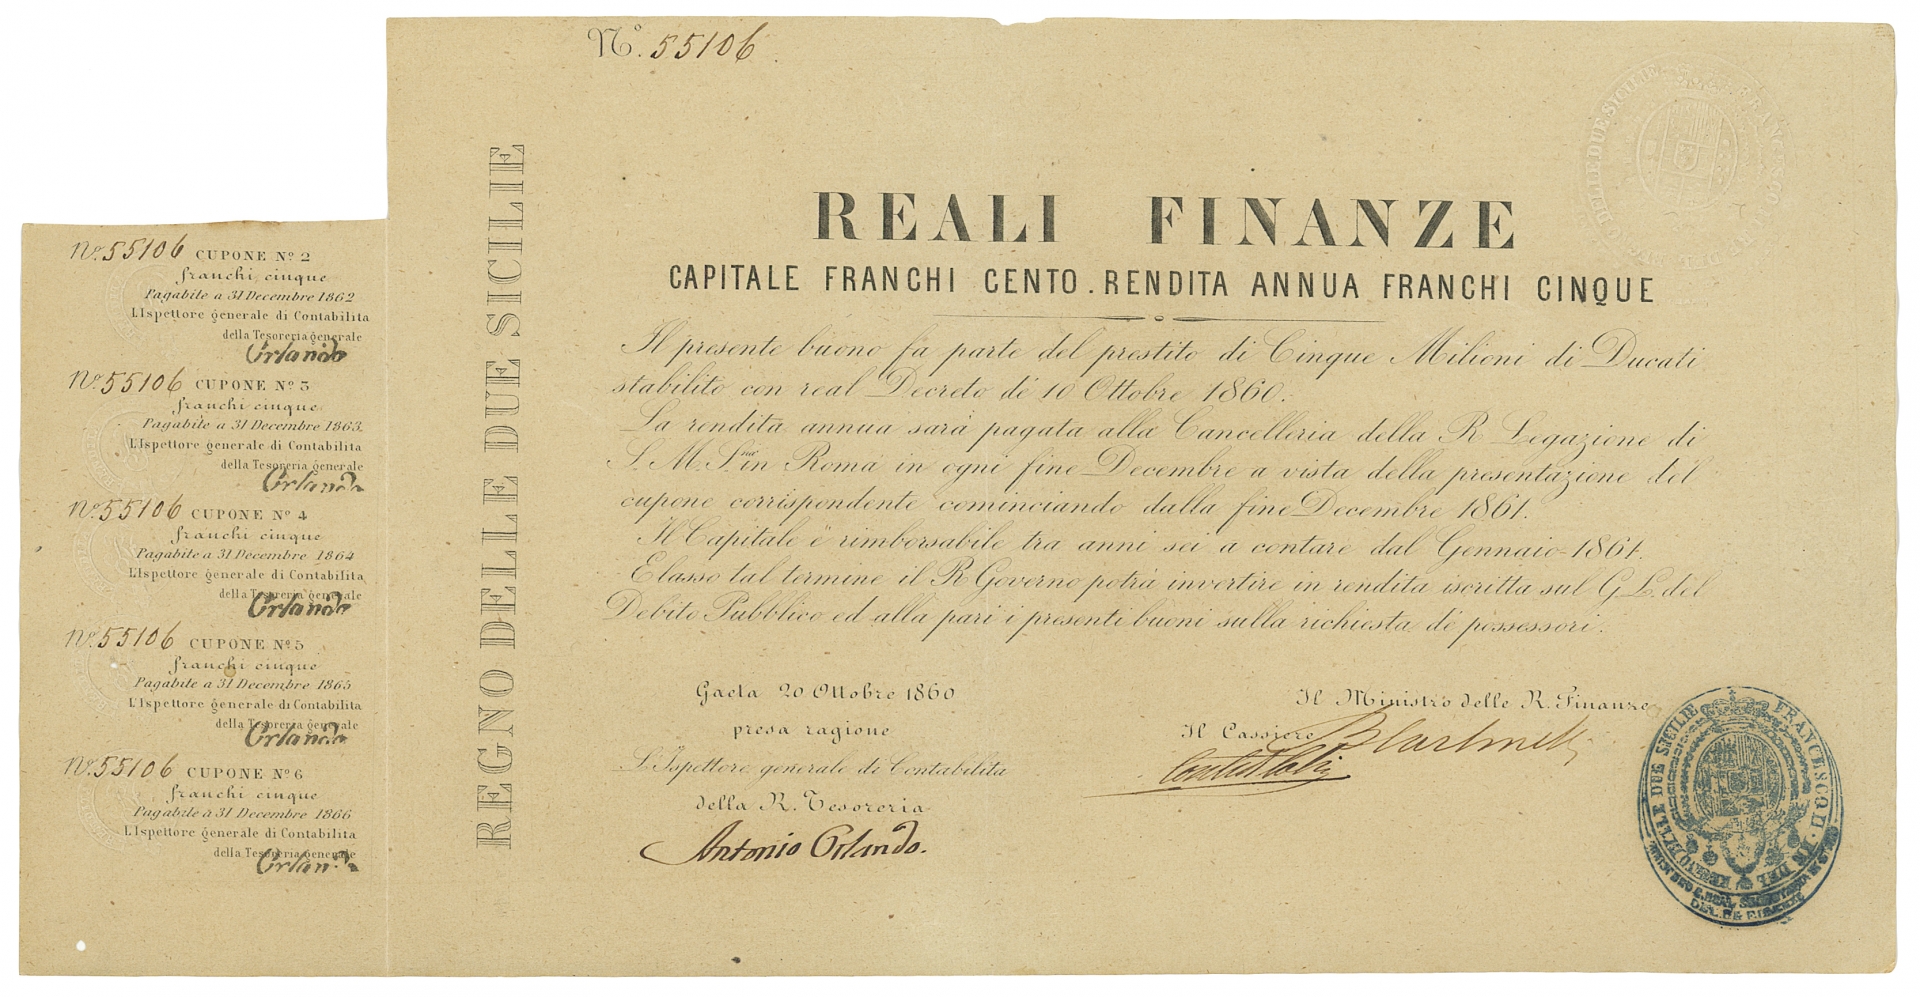 Nº. 55106
REGNO DELLE DUE SICILIE
REALI FINANZE
CAPITALE FRANCHI CENTO. RENDITA ANNUA FRANCHI CINQUE
Il presente buono fa parte del prestito di Cinque Milioni di Ducati
stabilito con real Decreto de' 10 Ottobre 1860.
La rendita annua sarà pagata alla Cancelleria della R. Legazione di
S. M. S.na in Roma in ogni fine Decembre a vista della presentazione del
cupone corrispondente cominciando dalla fine Decembre 1861.
Il Capitale è rimborsabile tra anni sei a contare dal Gennaio 1861.
Elasso tal termine il R Governo potrà invertire in rendita iscritta sul G. L. del
Debito Pubblico ed alla pari i presenti buoni sulla richiesta de' possessori.
Gaeta 20 Ottobre 1860
presa ragione
L'Ispettore generale di Contabilita
della R. Tesoreria
Antonio Orlando.
Il Ministro delle R. Finanze
Il Cassiere
FRANCESCO II
REGNO DELLE DUE SICILIE
Nº. 55106 CUPONE Nº 2
franchi cinque
Pagabile a 31 Decembre 1862
L'Ispettore generale di Contabilita
della Tesoreria generale
Orlando
Nº. 55106 CUPONE Nº 3
franchi cinque
Pagabile a 31 Decembre 1863.
L'Ispettore generale di Contabilita
della Tesoreria generale
Orlando
Nº. 55106 CUPONE Nº 4
franchi cinque
Pagabile a 31 Decembre 1864
L'Ispettore generale di Contabilita
della Tesoreria generale
Orlando
Nº. 55106 CUPONE Nº 5
franchi cinque
Pagabile a 31 Decembre 1865
L'Ispettore generale di Contabilita
della Tesoreria generale
Orlando
Nº. 55106 CUPONE Nº 6
franchi cinque
Pagabile a 31 Decembre 1866
L'Ispettore generale di Contabilita
della Tesoreria generale
Orlando
FRANCESCO II
DEL REGNO DELLE DUE SICILIE